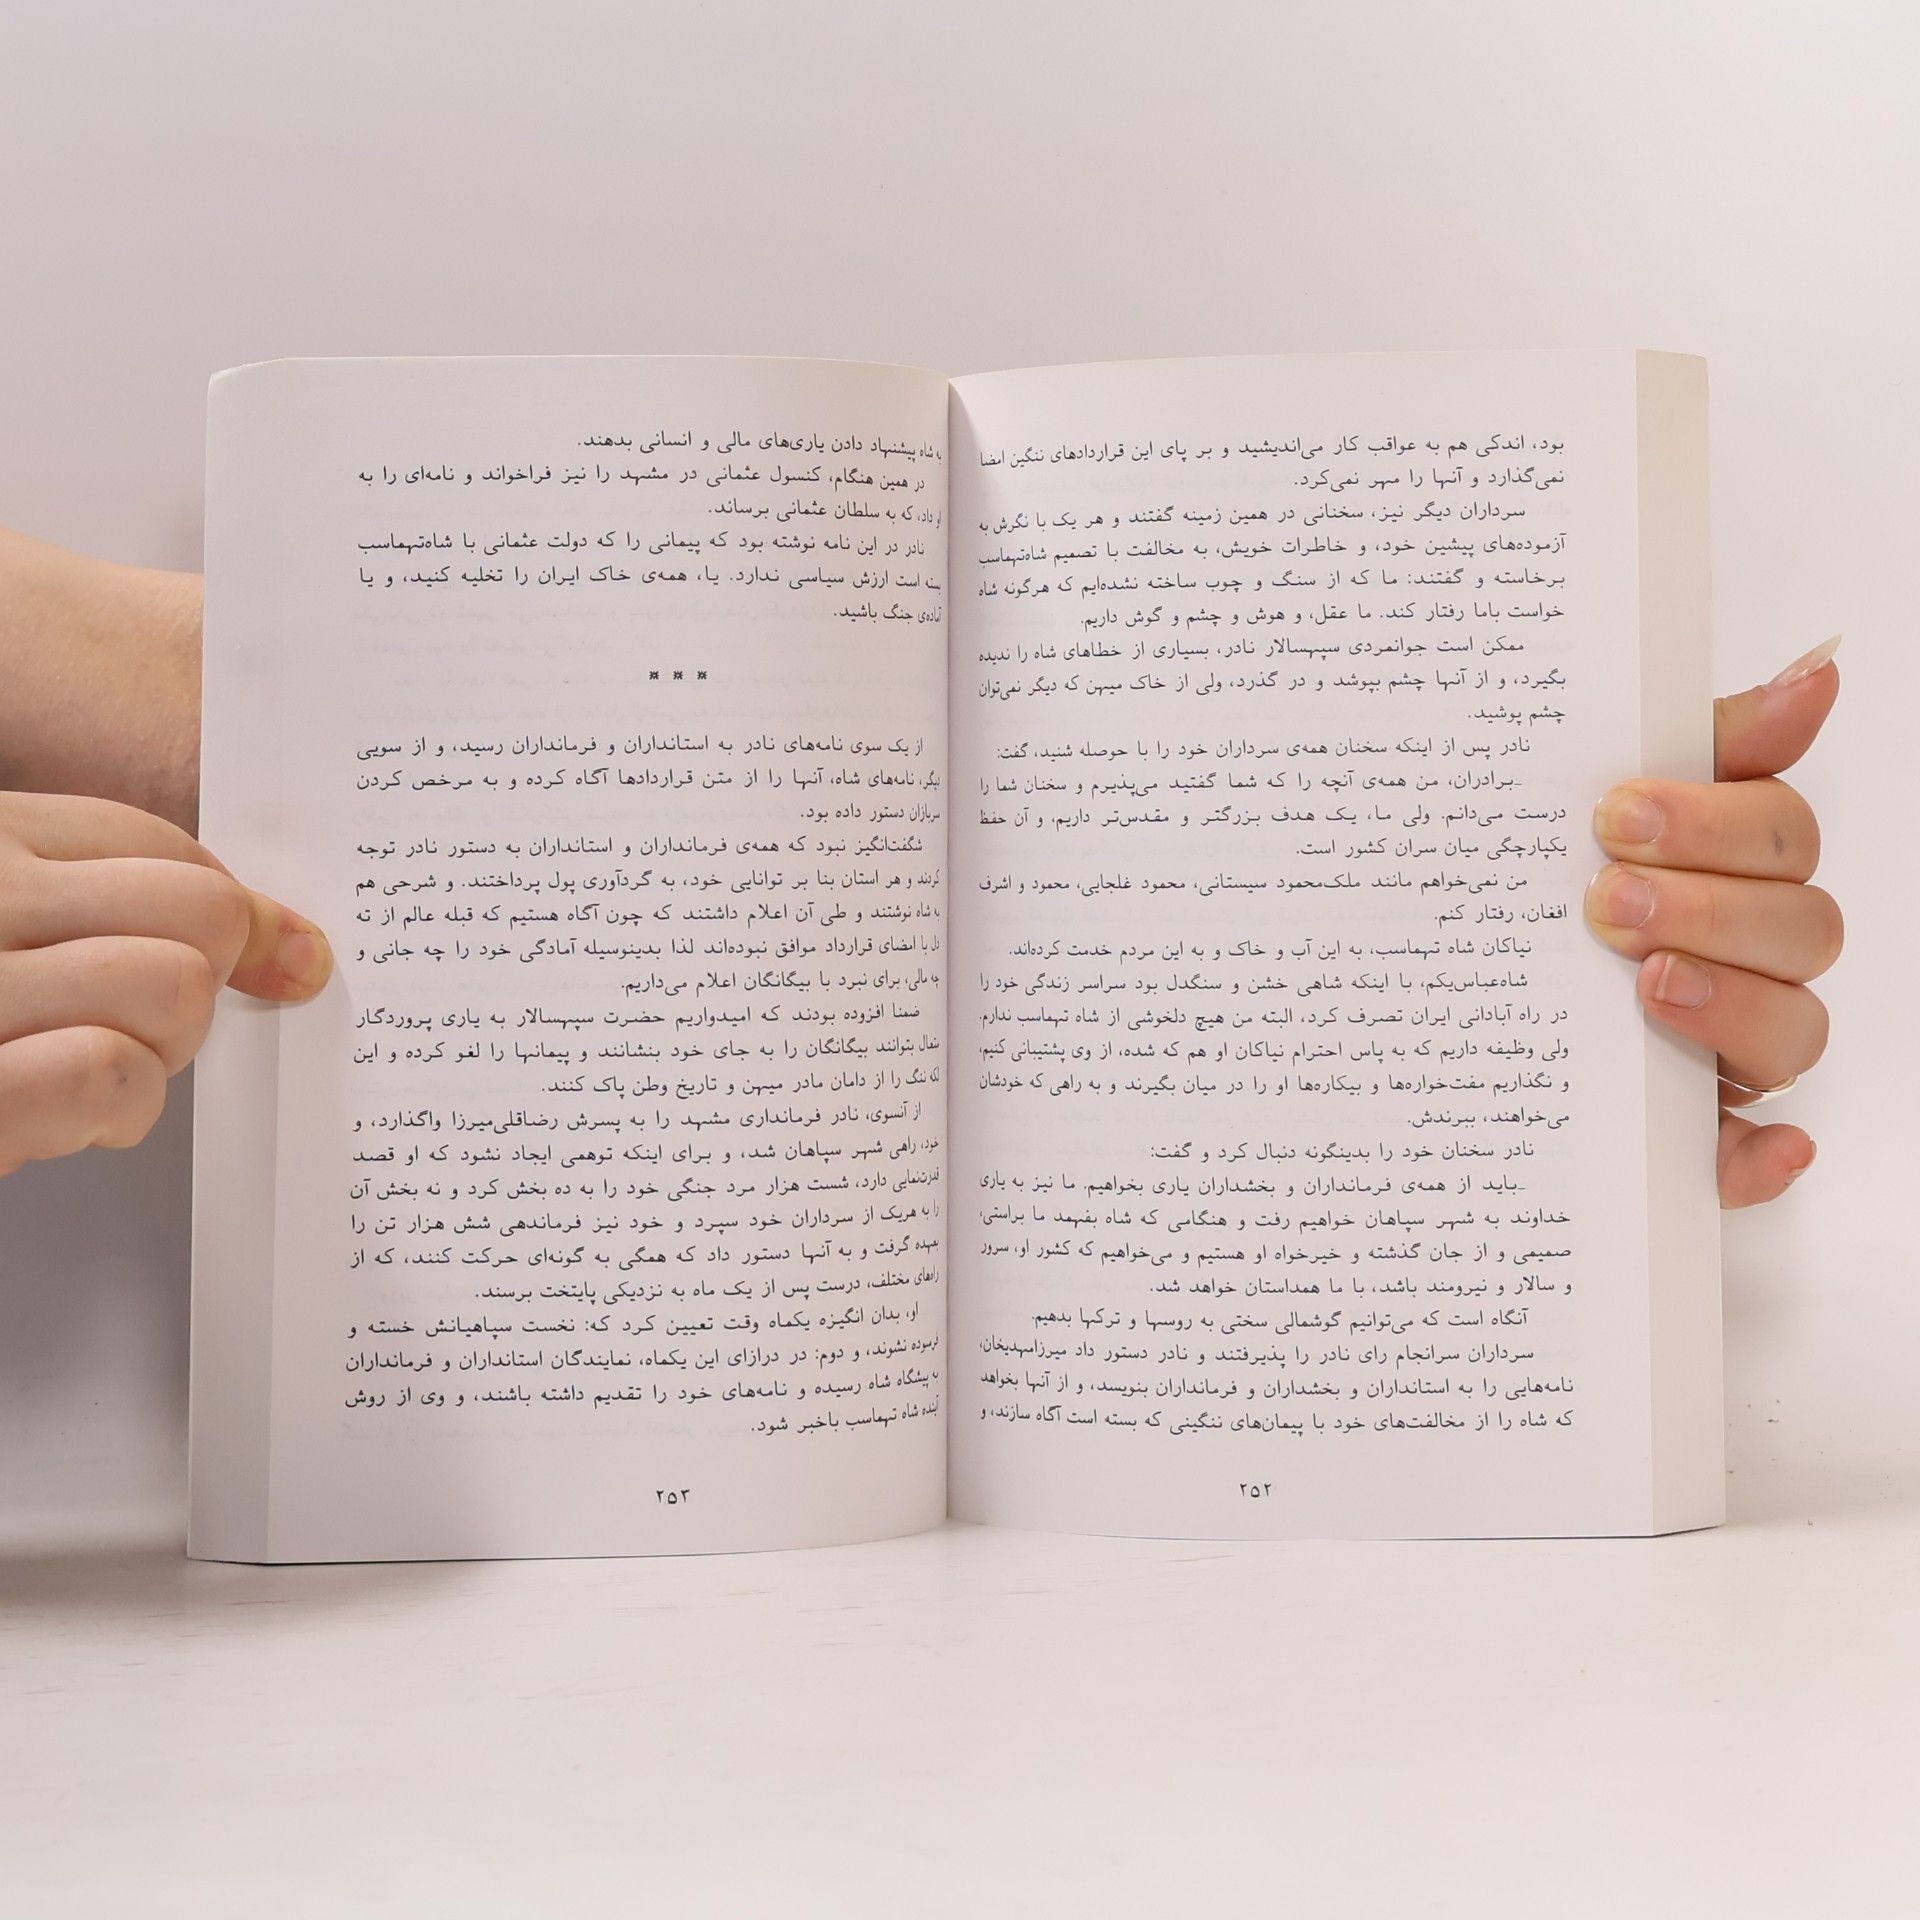 بود، اندکی هم به عواقب کار می‌اندیشید و بر پای این قراردادهای ننگین امضا
نمی‌گذارد و آنها را مهر نمی‌کرد.
سرداران دیگر نیز، سخنانی در همین زمینه گفتند و هر یک با نگرش به
آزموده‌های پیشین خود، و خاطرات خویش، به مخالفت با تصمیم شاه‌تهماسب
برخاسته و گفتند: ما که از سنگ و چوب ساخته نشده‌ایم که هرگونه شاه
خواست باما رفتار کند. ما عقل، و هوش و چشم و گوش داریم.
ممکن است جوانمردی سپهسالار نادر، بسیاری از خطاهای شاه را ندیده
بگیرد، و از آنها چشم بپوشد و در گذرد، ولی از خاک میهن که دیگر نمی‌توان
چشم پوشید.
نادر پس از اینکه سخنان همه‌ی سرداران خود را با حوصله شنید، گفت:
ـ‌برادران، من همه‌ی آنچه را که شما گفتید می‌پذیرم و سخنان شما را
درست می‌دانم. ولی ما، یک هدف بزرگتر و مقدس‌تر داریم، و آن حفظ
یکپارچگی میان سران کشور است.
من نمی‌خواهم مانند ملک‌محمود سیستانی، محمود غلجایی، محمود و اشرف
افغان، رفتار کنم.
نیاکان شاه تهماسب، به این آب و خاک و به این مردم خدمت کرده‌اند.
شاه‌عباس‌یکم، با اینکه شاهی خشن و سنگدل بود سراسر زندگی خود را
در راه آبادانی ایران تصرف کرد، البته من هیچ دلخوشی از شاه تهماسب ندارم.
ولی وظیفه داریم که به پاس احترام نیاکان او هم که شده، از وی پشتیبانی کنیم،
و نگذاریم مفت‌خواره‌ها و بیکاره‌ها او را در میان بگیرند و به راهی که خودشان
می‌خواهند، ببرندش.
نادر سخنان خود را بدینگونه دنبال کرد و گفت:
ـ‌باید از همه‌ی فرمانداران و بخشداران یاری بخواهیم. ما نیز به یاری
خداوند به شهر سپاهان خواهیم رفت و هنگامی که شاه بفهمد ما براستی،
صمیمی و از جان گذشته و خیرخواه او هستیم و می‌خواهیم که کشور او، سرور
و سالار و نیرومند باشد، با ما همداستان خواهد شد.
آنگاه است که می‌توانیم گوشمالی سختی به روسها و ترکها بدهیم.
سرداران سرانجام رای نادر را پذیرفتند و نادر دستور داد میرزامهدیخان،
نامه‌هایی را به استانداران و بخشداران و فرمانداران بنویسد، و از آنها بخواهد
که شاه را از مخالفت‌های خود با پیمان‌های ننگینی که بسته است آگاه سازند، و
۲۵۲
به شاه پیشنهاد دادن یاری‌های مالی و انسانی بدهند.
در همین هنگام، کنسول عثمانی در مشهد را نیز فراخواند و نامه‌ای را به
او داد، که به سلطان عثمانی برساند.
نادر در این نامه نوشته بود که پیمانی را که دولت عثمانی با شاه‌تهماسب
بسته است ارزش سیاسی ندارد. یا، همه‌ی خاک ایران را تخلیه کنید، و یا
آماده‌ی جنگ باشید.
* * *
از یک سوی نامه‌های نادر به استانداران و فرمانداران رسید، و از سویی
دیگر، نامه‌های شاه، آنها را از متن قراردادها آگاه کرده و به مرخص کردن
سربازان دستور داده بود.
شگفت‌انگیز نبود که همه‌ی فرمانداران و استانداران به دستور نادر توجه
کردند و هر استان بنا بر توانایی خود، به گردآوری پول پرداختند. و شرحی هم
به شاه نوشتند و طی آن اعلام داشتند که چون آگاه هستیم که قبله عالم از ته
دل با امضای قرارداد موافق نبوده‌اند لذا بدینوسیله آمادگی خود را چه جانی و
چه مالی، برای نبرد با بیگانگان اعلام می‌داریم.
ضمنا افزوده بودند که امیدواریم حضرت سپهسالار به یاری پروردگار
متعال بتوانند بیگانگان را به جای خود بنشانند و پیمانها را لغو کرده و این
لکه ننگ را از دامان مادر میهن و تاریخ وطن پاک کنند.
از آنسوی، نادر فرمانداری مشهد را به پسرش رضاقلی‌میرزا واگذارد، و
خود، راهی شهر سپاهان شد، و برای اینکه توهمی ایجاد نشود که او قصد
قدرت‌نمایی دارد، شست هزار مرد جنگی خود را به ده بخش کرد و نه بخش آن
را به هریک از سرداران خود سپرد و خود نیز فرماندهی شش هزار تن را
بعهده گرفت و به آنها دستور داد که همگی به گونه‌ای حرکت کنند، که از
راه‌های مختلف، درست پس از یک ماه به نزدیکی پایتخت برسند.
او، بدان انگیزه یکماه وقت تعیین کرد که: نخست سپاهیانش خسته و
فرسوده نشوند، و دوم: در درازای این یکماه، نمایندگان استانداران و فرمانداران
به پیشگاه شاه رسیده و نامه‌های خود را تقدیم داشته باشند، و وی از روش
آینده شاه تهماسب باخبر شود.
۲۵۳